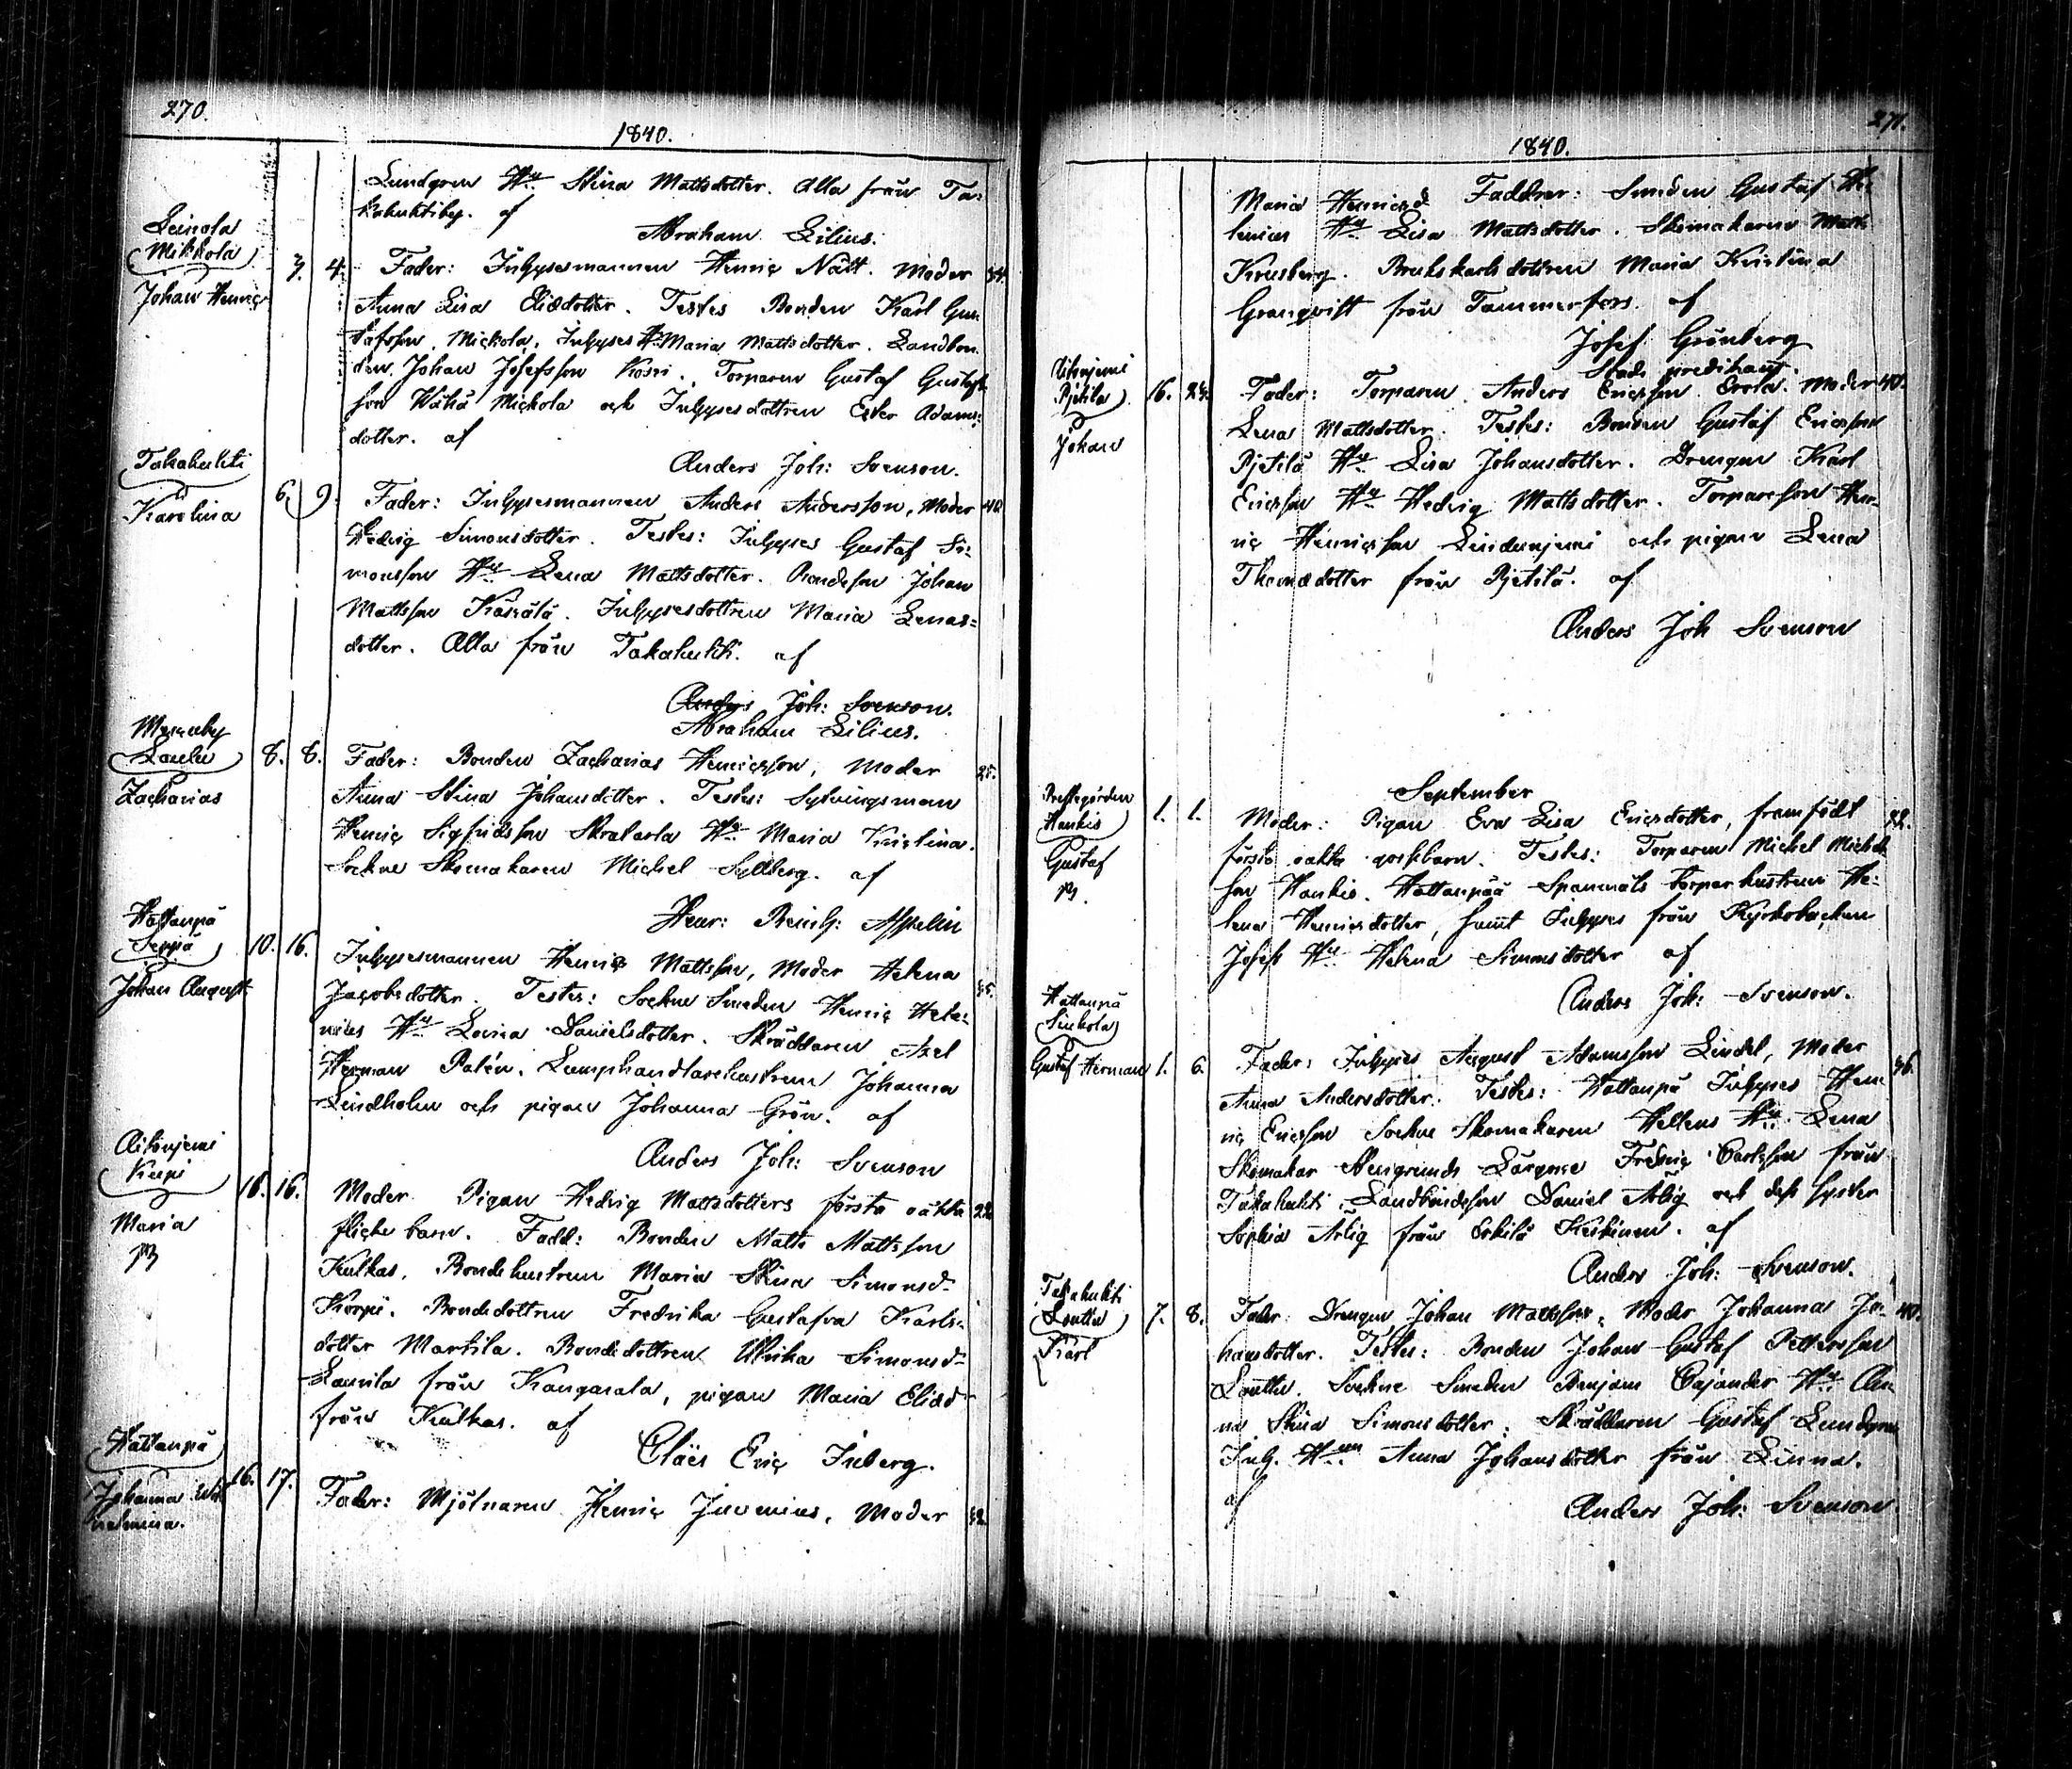 270.
1840.
Lundgren Hu Stina Mattsdotter. Alla från Ta=
kahuhtiby. af
Abraham Lilius.
Leinola
Mikkola
Johan Henric
3. 4. Fader: Inhysesmannen Henric Nätt. Moder 34.
Anna Lisa Eliædotter. Testes Bonden Karl Gus
tafsson, Mickola, Inhyses H: Maria Mattsdotter. Landbon
den Johan Josefsson Kossi. Torparen Gustaf Gustafs
son Wähä Mickola och Inhysesdottren Ester Adams=
dotter. af
Anders Joh: Svenson.
Takahuhti
Karolina
6. 9. Fader: Inhysesmannen Anders Andersson, Moder 40
Hedvig Simonsdotter. Testes: Inhyses Gustaf Si=
monsson Hu Lena Mattsdotter. Bondeson Johan
Mattsson Käsälä. Inhysesdottren Maria Lenas=
dotter. Alla från Takahuhti. af
Anders Joh: Svenson.
Abraham Lilius.
Messuby
Laulu
Zacharias
8. 8. Fader: Bonden Zacharias Henricsson, Moder 25.
Anna Stina Johansdotter. Testes: Sytningsman
Henric Sigfridsson Skratarla Hu Maria Kristina.
Sockne Skomakaren Michel Sellberg. af
Henr: Reinh: Appelin
Hattanpä
Seppä
Johan August
10. 16. Inhysesmannen Henric Mattsson, Moder Helena 35.
Jacobsdotter. Testes: Sockne Smeden Henric Hele=
nius Hu Lovisa Danielsdotter. Skräddaren Axel
Herman Palén. Lumphandlarehustrun Johanna
Lindholm och pigan Johanna Grön. af
Anders Joh: Svenson
Aitoniemi
Knupi
Maria
16. 16. Moder Pigan Hedvig Mattsdotters första oäkta 22
flicke barn. Fadd: Bonden Matts Mattsson
Kulkas. Bondehustrun Maria Stina Simonsd-
Korpi. Bondedottren Fredrika Gustafva Karls=
dotter Martila. Bondedottren Ulrika Simonsd-
Laurila från Kangasala, pigan Maria Eliæd-
från Kulkas. af
Claës Eric Inberg.
Hattanpä
Johanna Wil
helmina.
16. 17. Fader: Mjölnaren Henric Juvenius, Moder 32.
271.
1840.
Maria Henricsd Faddrar: Smeden Gustaf He
lenius Hu Lisa Mattsdotter. Skomakaren Matts
Krusberg. Brukskarls dottren Maria Kristina
Granqvist från Tammerfors. af
Josef Grönberg
Stads predikant.
Aitoniemi
Pjetila
Johan
16. 23. Fader: Torparen Anders Ericsson Eerola. Moder 40.
Lena Mattsdotter. Testes: Bonden Gustaf Ericsson
Pjetilä Hu Lisa Johansdotter. Drengen Karl
Ericsson Hu Hedvig Mattsdotter. Torpareson Hen=
ric Henricsson Lindunjemi och pigan Lena
Thomædotter från Pjetilä. af
Anders Joh Svenson
September
Prestegården
Hankis
Gustaf
1. 1. Moder: Pigan Eva Lisa Ericsdotter, framfödt 32.
första oäkta gossebarn. Testes: Torparen Michel Michels
son Hankis. Hattanpää Spannmåls torparhustrun He=
lena Henricsdotter, samt Inhyses från Kyrkobacken
Josefs Hu Helena Simonsdotter af
Anders Joh: Svenson.
Hattanpä
Sinkola
Gustaf Herman
1. 6. Fader: Inhyses August Adamsson Lindel, Moder 36.
Anna Andersdotter. Testes: Hattanpä Inhyses Hen
ric Ericsson Sockne Skomakaren Hellens Hu Lena
Skomakar Stengrunds Lärgosse Fredric Carlsson från
Takahuhti. Landbondeson Daniel Arlig och dess syster
Sophia Arlig från Erkilä Keskinen. af
Anders Joh: Svenson.
Takahuhti
Louttu
Karl
7. 8. Fader: Drengen Johan Mattsson, Moder Johanna Jo- 40.
hansdotter. Testes: Bonden Johan Gustaf Pettersson
Louttu. Sockne Smeden Benjam Cajander Hu An
na Stina Simonsdotter. Skräddaren Gustaf Lundgren
Inh. H:an Anna Johansdotter från Linna.
af
Anders Joh: Svenson